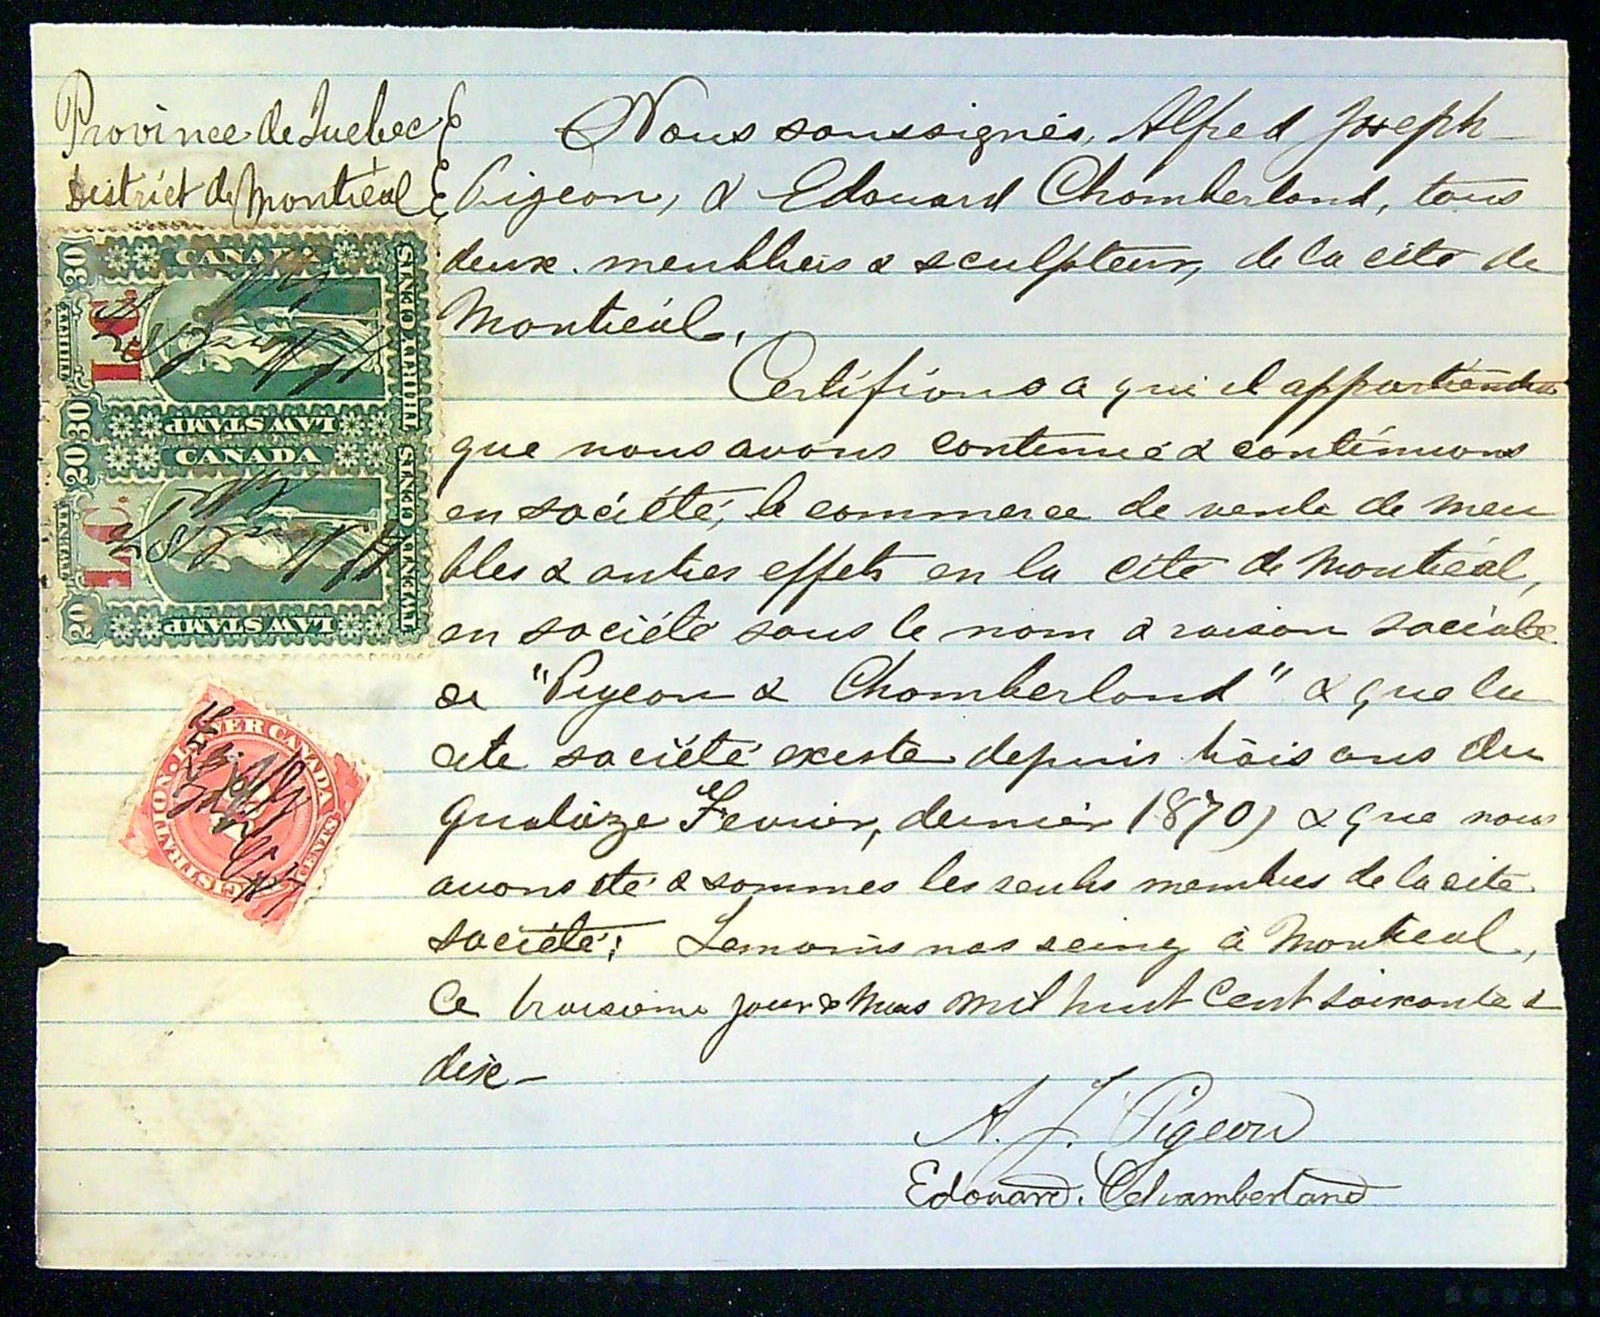 Province de Quebec
District de Montréal
Nous soussignés, Alfred Joseph
Pigeon, & Edouard Chamberland, tous
deux meubliers & sculpteur, de la cité de
Montréal.
Certifions a qui il appartiendra
que nous avons continué & continuons
en société, le commerce de vente de meu
bles & autres effets en la cité de Montréal,
en société sous le nom & raison sociale
de "Pigeon & Chamberland" & que la
dite société existe depuis trois ans du
quatorze Fevrier, dernier 1870) & que nous
avons été & sommes les seuls membres de la dite
société: Temoins nos seing à Montreal,
Ce troisieme jour de Mars mil huit cent soixante &
dix—
A. J. Pigeon
Edouard Chamberland
CANADA
30
30
L.C.
THIRTY CENTS
LAW STAMP
CANADA
20
20
L.C.
TWENTY CENTS
LAW STAMP
LOWER CANADA
REGISTRATION
CENTS